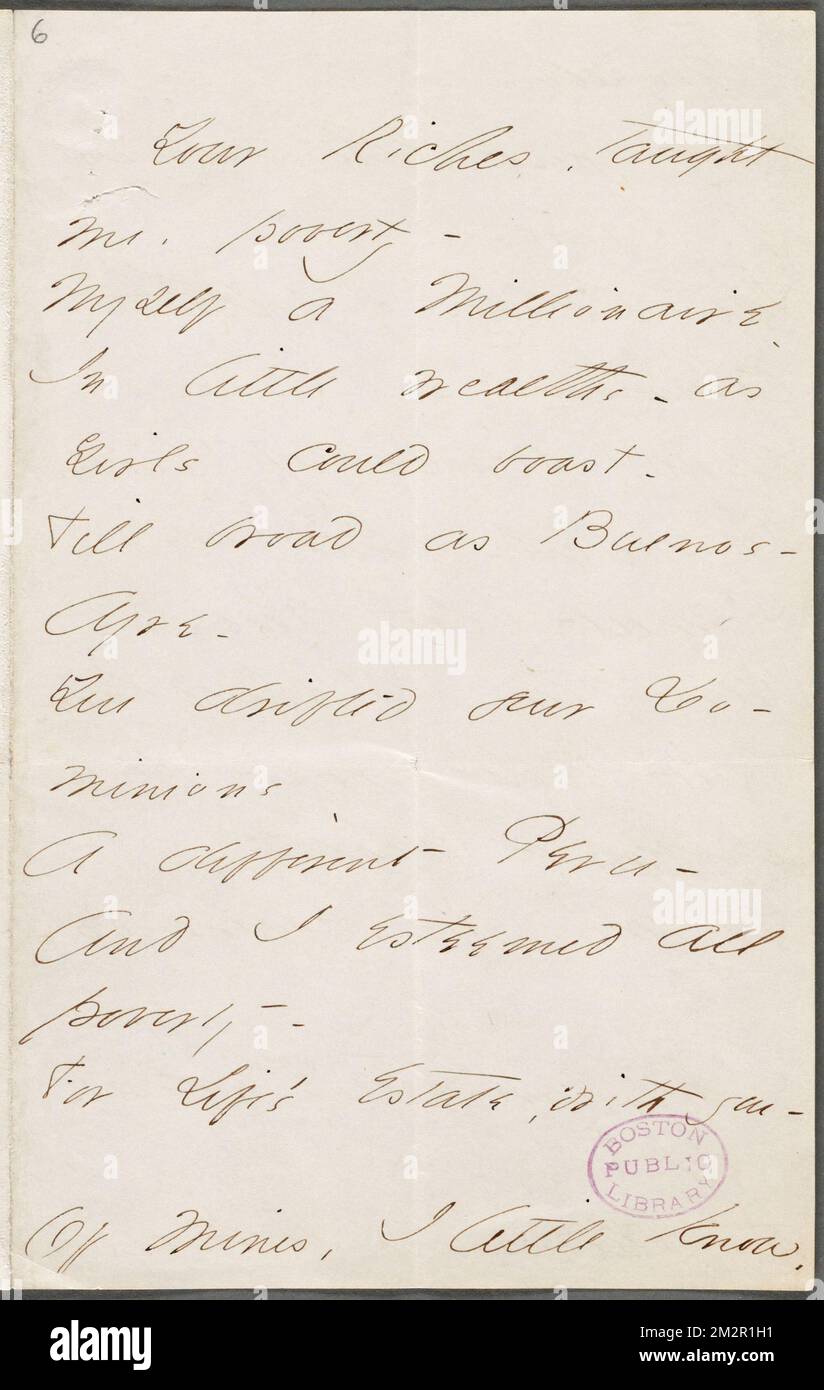 6
Your Riches, taught
me, poverty -
Myself a Millionaire
In little wealths - as
Girls could boast -
Till broad as Buenos -
Ayre -
You drifted your Do -
minions
A different Peru -
And I esteemed all
poverty - -
For Life's Estate, with you -
BOSTON
PUBLIC
LIBRARY
Of Mines, I little know,
alamy
alamy
alamy
a
a
alamy
Image ID: 2M2R1H1
www.alamy.com